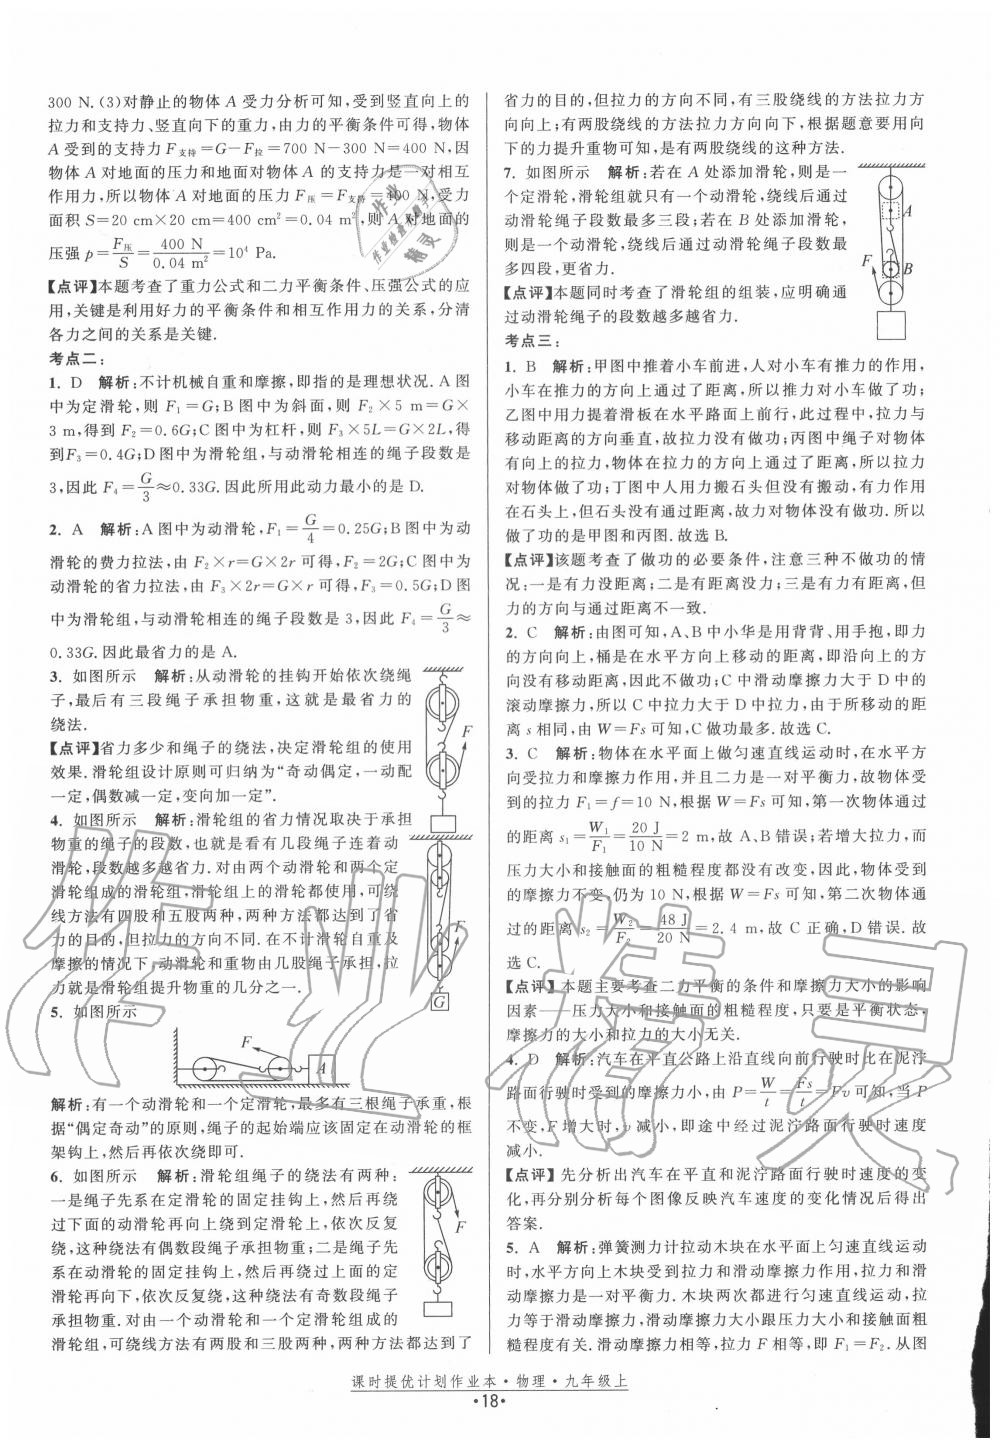 300 N. (3)对静止的物体 A 受力分析可知,受到竖直向上的
拉力和支持力、竖直向下的重力,由力的平衡条件可得,物体
A 受到的支持力 F支持=G-F拉=700 N-300 N=400 N.因
物体 A 对地面的压力和地面对物体 A 的支持力是一对相互
作用力,所以物体 A 对地面的压力 F压=F支持=400 N,受力
面积 S=20 cm×20 cm=400 cm²=0.04 m²,则 A 对地面的
压强 p=F压/S=400 N/0.04 m²=10⁴ Pa.
【点评】本题考查了重力公式和二力平衡条件、压强公式的应
用,关键是利用好力的平衡条件和相互作用力的关系,分清
各力之间的关系是关键.
考点二:
1. D 解析:不计机械自重和摩擦,即指的是理想状况.A 图
中为定滑轮,则 F₁=G;B 图中为斜面,则 F₂×5 m=G×
3 m,得到 F₂=0.6G;C 图中为杠杆,则 F₃×5L=G×2L,得
到F₃=0.4G;D 图中为滑轮组,与动滑轮相连的绳子段数是
3,因此 F₄=G/3≈0.33G.因此所用此动力最小的是 D.
2. A 解析:A 图中为动滑轮,F₁=G/4=0.25G;B 图中为动
滑轮的费力拉法,由 F₂×r=G×2r 可得,F₂=2G;C 图中为
动滑轮的省力拉法,由 F₃×2r=G×r 可得,F₃=0.5G;D 图
中为滑轮组,与动滑轮相连的绳子段数是 3,因此 F₄=G/3≈
0.33G.因此最省力的是 A.
3. 如图所示 解析:从动滑轮的挂钩开始依次绕绳
子,最后有三段绳子承担物重,这就是最省力的
绕法.
F
【点评】省力多少和绳子的绕法,决定滑轮组的使用
效果.滑轮组设计原则可归纳为“奇动偶定,一动配
一定,偶数减一定,变向加一定”.
4. 如图所示 解析:滑轮组的省力情况取决于承担
物重的绳子的段数,也就是看有几段绳子连着动
滑轮,段数越多越省力.对由两个动滑轮和两个定
滑轮组成的滑轮组,滑轮组上的滑轮都使用,可绕
线方法有四股和五股两种,两种方法都达到了省
力的目的,但拉力的方向不同.在不计滑轮自重及
摩擦的情况下,动滑轮和重物由几股绳子承担,拉
力就是滑轮组提升物重的几分之一.
F
G
5. 如图所示
F
A
解析:有一个动滑轮和一个定滑轮,最多有三根绳子承重,根
据“偶定奇动”的原则,绳子的起始端应该固定在动滑轮的框
架钩上,然后再依次绕即可.
6. 如图所示 解析:滑轮组绳子的绕法有两种:
一是绳子先系在定滑轮的固定挂钩上,然后再绕
过下面的动滑轮再向上绕到定滑轮上,依次反复
绕,这种绕法有偶数段绳子承担物重;二是绳子先
系在动滑轮的固定挂钩上,然后再绕过上面的定
滑轮再向下,依次反复绕,这种绕法有奇数段绳子
承担物重.对由一个动滑轮和一个定滑轮组成的
滑轮组,可绕线方法有两股和三股两种,两种方法都达到了
F
省力的目的,但拉力的方向不同,有三股绕绳的方法拉力方
向向上;有两股绕绳的方法拉力方向向下,根据题意要用向
下的力提升重物可知,是有两股绕线的这种方法.
7. 如图所示 解析:若在 A 处添加滑轮,则是一
个定滑轮,滑轮组就只有一个动滑轮,绕线后通过
动滑轮绳子段数最多三段;若在 B 处添加滑轮,
则是一个动滑轮,绕线后通过动滑轮绳子段数最
多四段,更省力.
A
F
B
【点评】本题同时考查了滑轮组的组装,应明确通
过动滑轮绳子的段数越多越省力.
考点三:
1. B 解析:甲图中推着小车前进,人对小车有推力的作用,
小车在推力的方向上通过了距离,所以推力对小车做了功;
乙图中用力提着滑板在水平路面上前行,此过程中,拉力与
移动距离的方向垂直,故拉力没有做功;丙图中绳子对物体
有向上的拉力,物体在拉力的方向上通过了距离,所以拉力
对物体做了功;丁图中人用力搬石头但没有搬动,有力作用
在石头上,但石头没有通过距离,故力对物体没有做功.所以
做了功的是甲图和丙图.故选 B.
【点评】该题考查了做功的必要条件,注意三种不做功的情
况:一是有力没距离;二是有距离没力;三是有力有距离,但
力的方向与通过距离不一致.
2. C 解析:由图可知,A、B 中小华是用背背、用手抱,即力
的方向向上,桶是在水平方向上移动的距离,即沿向上的方向
没有移动距离,因此不做功;C 中滑动摩擦力大于 D 中的
滚动摩擦力,所以 C 中拉力大于 D 中拉力,由于所移动的距
离 s 相同,由 W=Fs 可知,C 做功最多.故选 C.
3. C 解析:物体在水平面上做匀速直线运动时,在水平方
向受拉力和摩擦力作用,并且二力是一对平衡力,故物体受
到的拉力 F₁=f=10 N,根据 W=Fs 可知,第一次物体通过
的距离 s₁=W₁/F₁=20 J/10 N=2 m,故 A、B 错误;若增大拉力,而
压力大小和接触面的粗糙程度都没有改变,因此,物体受到
的摩擦力不变,仍为 10 N,根据 W=Fs 可知,第二次物体通
过的距离 s₂=W₂/F₂=48 J/20 N=2.4 m,故 C 正确,D 错误.故
选 C.
【点评】本题主要考查二力平衡的条件和摩擦力大小的影响
因素——压力大小和接触面的粗糙程度,只要是平衡状态,
摩擦力的大小和拉力的大小无关.
4. D 解析:汽车在平直公路上沿直线向前行驶时比在泥泞
路面行驶时受到的摩擦力小,由 P=W/t=Fs/t=Fv 可知,当 P
不变,F 增大时,v 减小,即途中经过泥泞路面行驶时速度
减小.
【点评】先分析出汽车在平直和泥泞路面行驶时速度的变
化,再分别分析每个图像反映汽车速度的变化情况后得出
答案.
5. A 解析:弹簧测力计拉动木块在水平面上匀速直线运动
时,在水平方向上木块受到拉力和滑动摩擦力作用,拉力和滑
动摩擦力是一对平衡力.木块两次都进行匀速直线运动,拉
力等于滑动摩擦力,滑动摩擦力大小跟压力大小和接触面粗
糙程度有关.滑动摩擦力相等,拉力 F 相等,即 F₁=F₂.从图
课时提优计划作业本·物理·九年级上
·18·
作业精灵